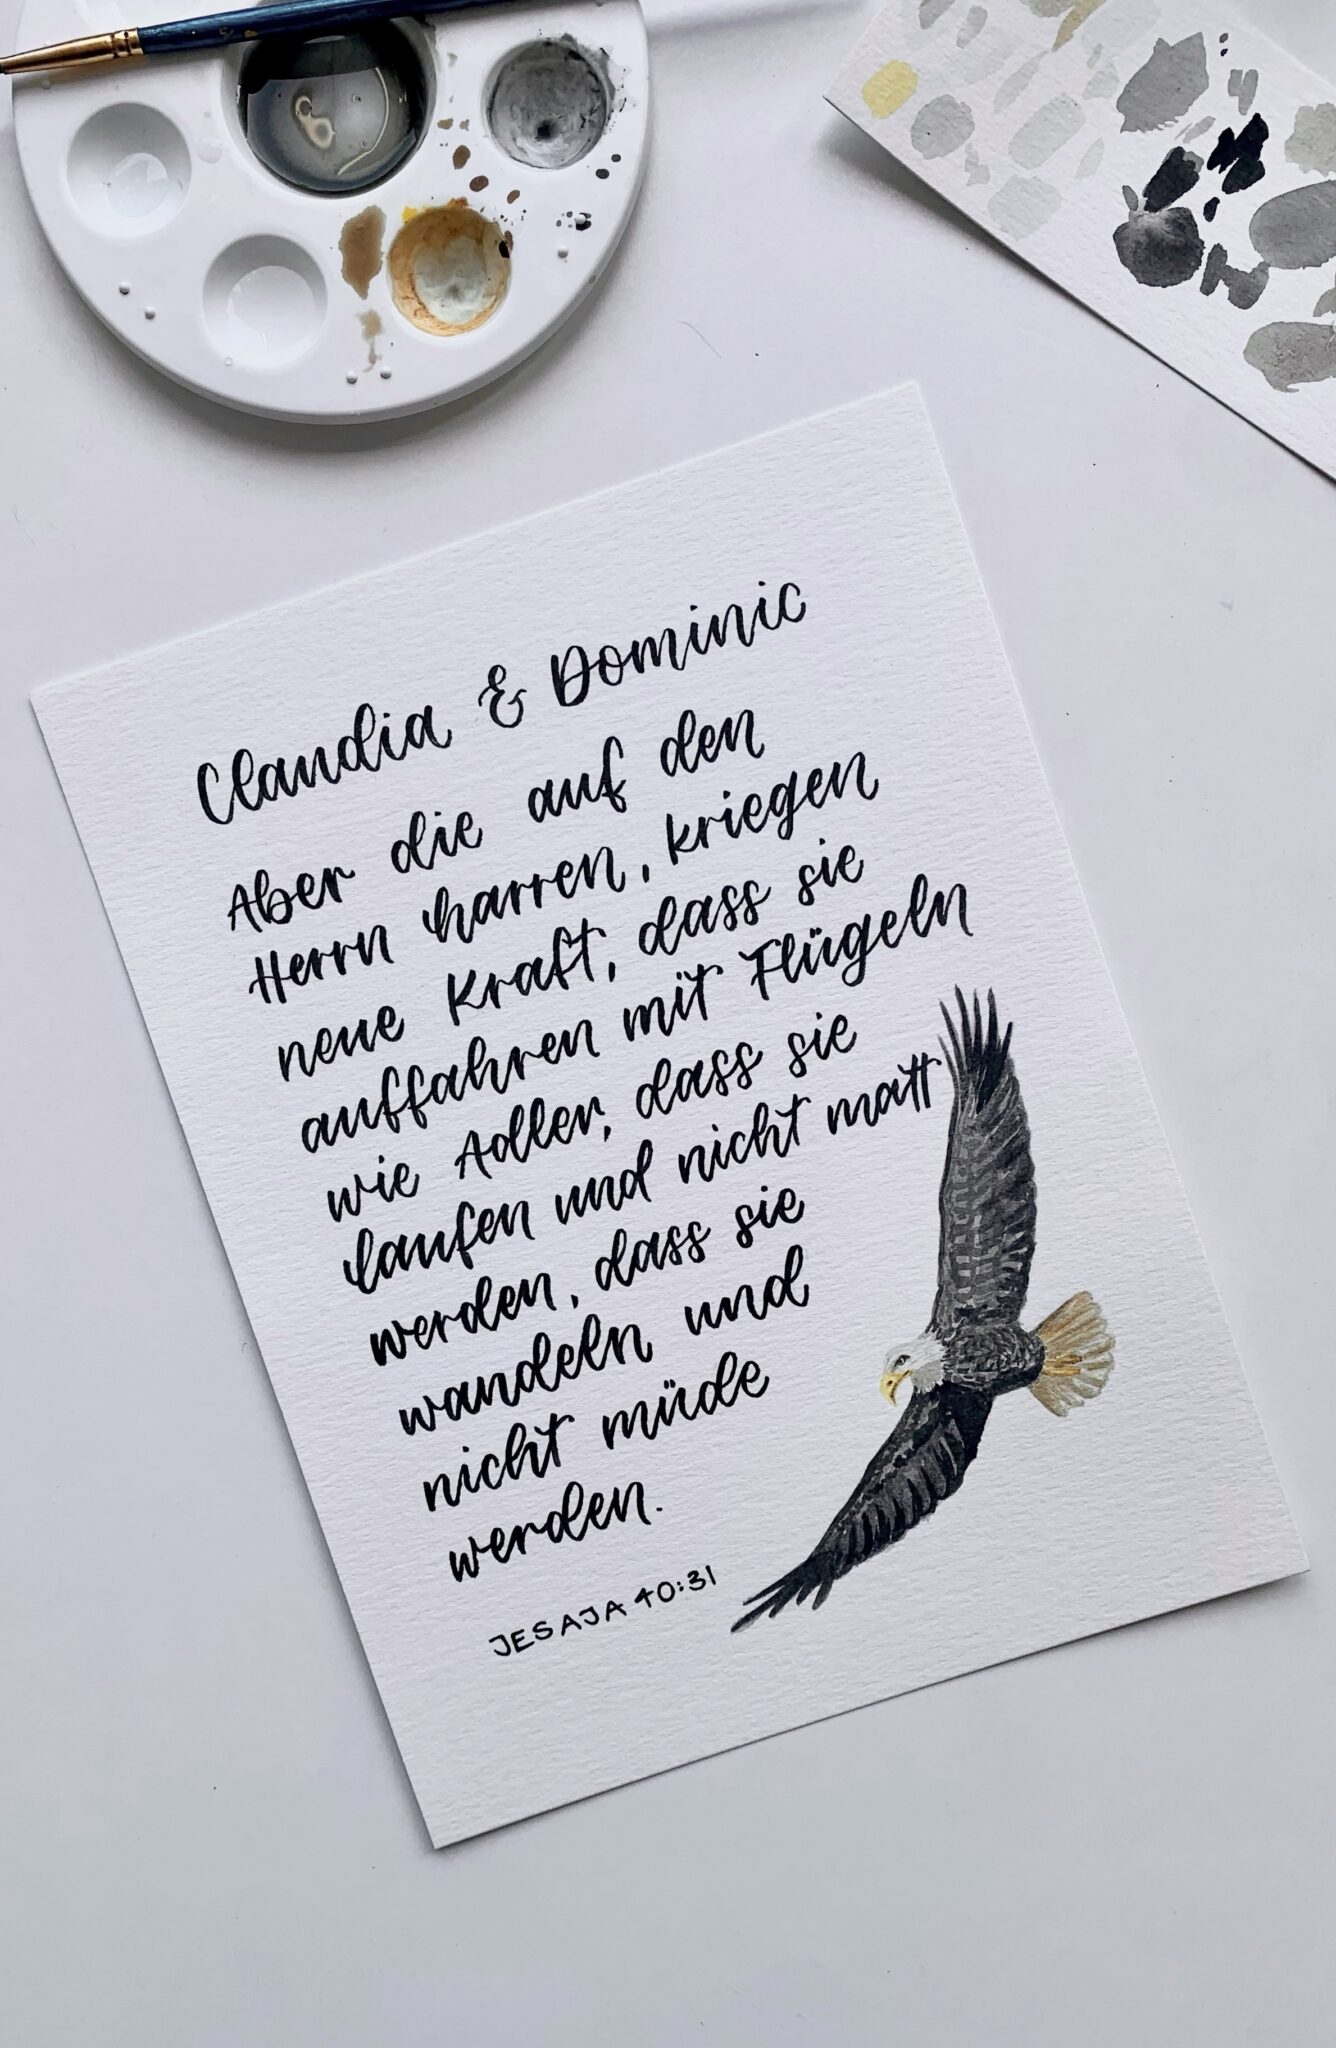 Claudia & Dominic
Aber die auf den
Herrn harren, kriegen
neue Kraft, dass sie
auffahren mit Flügeln
wie Adler, dass sie
laufen und nicht matt
werden, dass sie
wandeln und
nicht müde
werden.
JESAJA 40:31